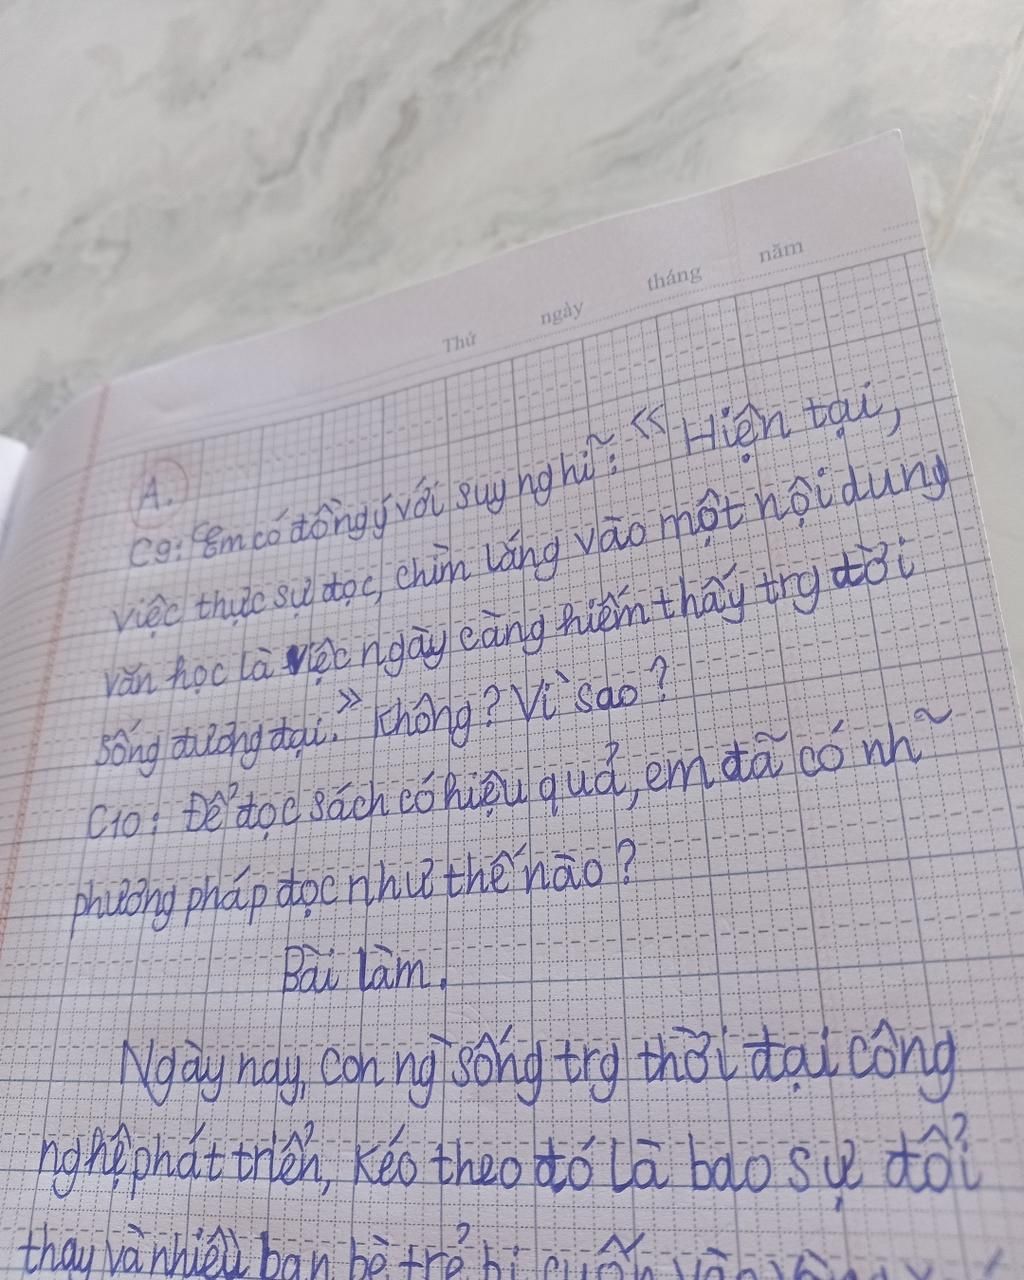 Thứ ngày tháng năm
A.
C9: "Em có đồng ý với suy nghĩ: << Hiện tại,
việc thực sự đọc, chìm lắng vào một nội dung
văn học là việc ngày càng hiếm thấy trg đời
sống đương đại. >> không? Vì sao?
C10: Để đọc sách có hiệu quả, em đã có nh~
phương pháp đọc như thế nào?
Bài làm.
Ngày nay, con ng` sống trg thời đại công
nghệ phát triển, kéo theo đó là bao sự đổi
thay và nhiều bạn bè trẻ bị cuốn vào